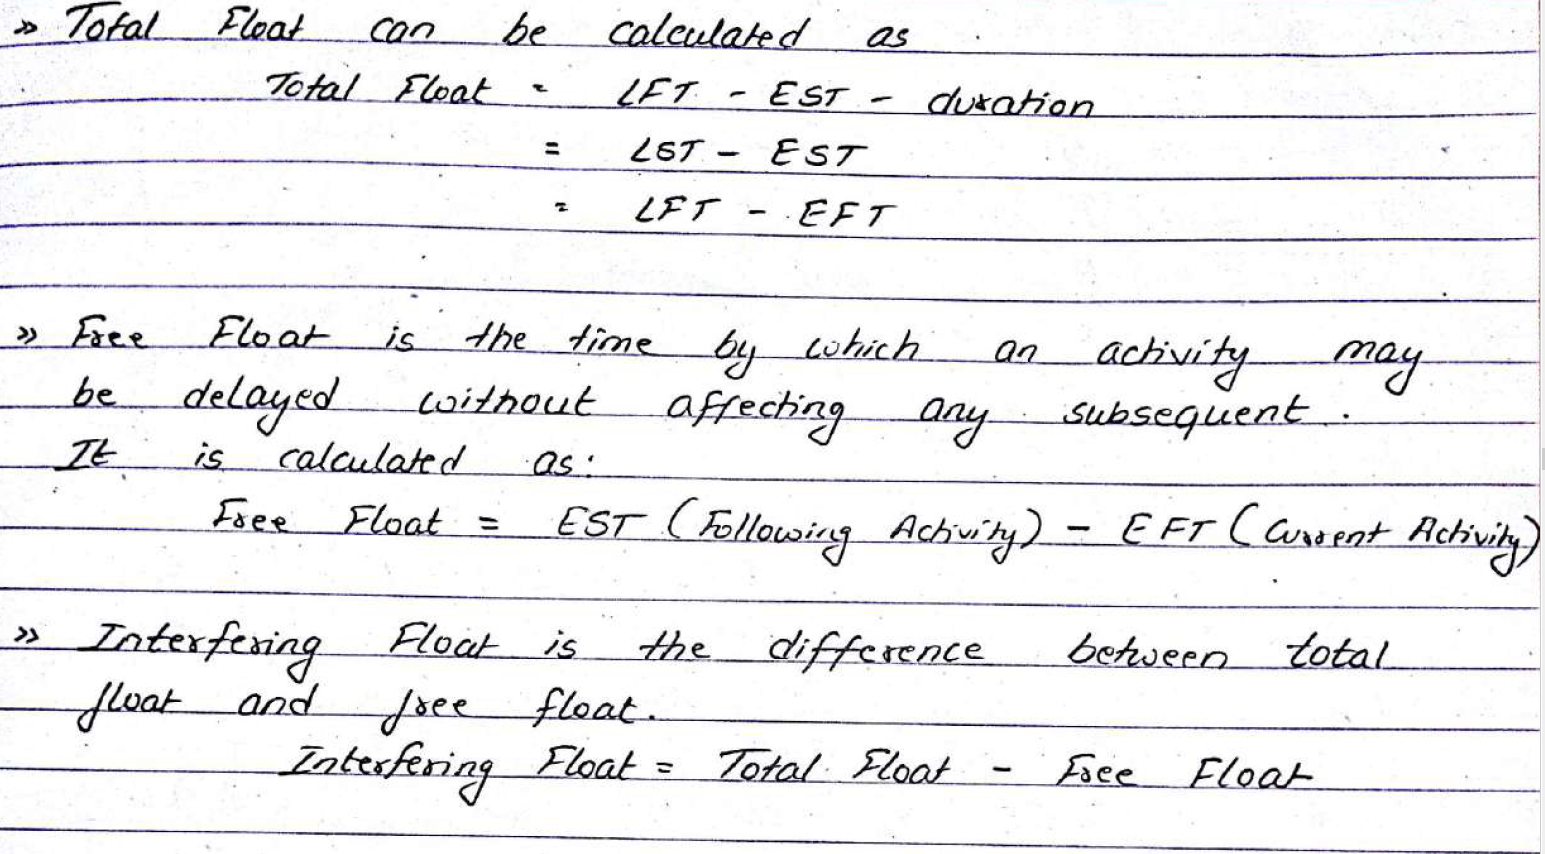 » Total Float can be calculated as
Total Float = LFT - EST - duration
= LST - EST
= LFT - EFT
» Free Float is the time by which an activity may
be delayed without affecting any subsequent.
It is calculated as:
Free Float = EST (Following Activity) - EFT (Current Activity)
» Interfering Float is the difference between total
float and free float.
Interfering Float = Total Float - Free Float